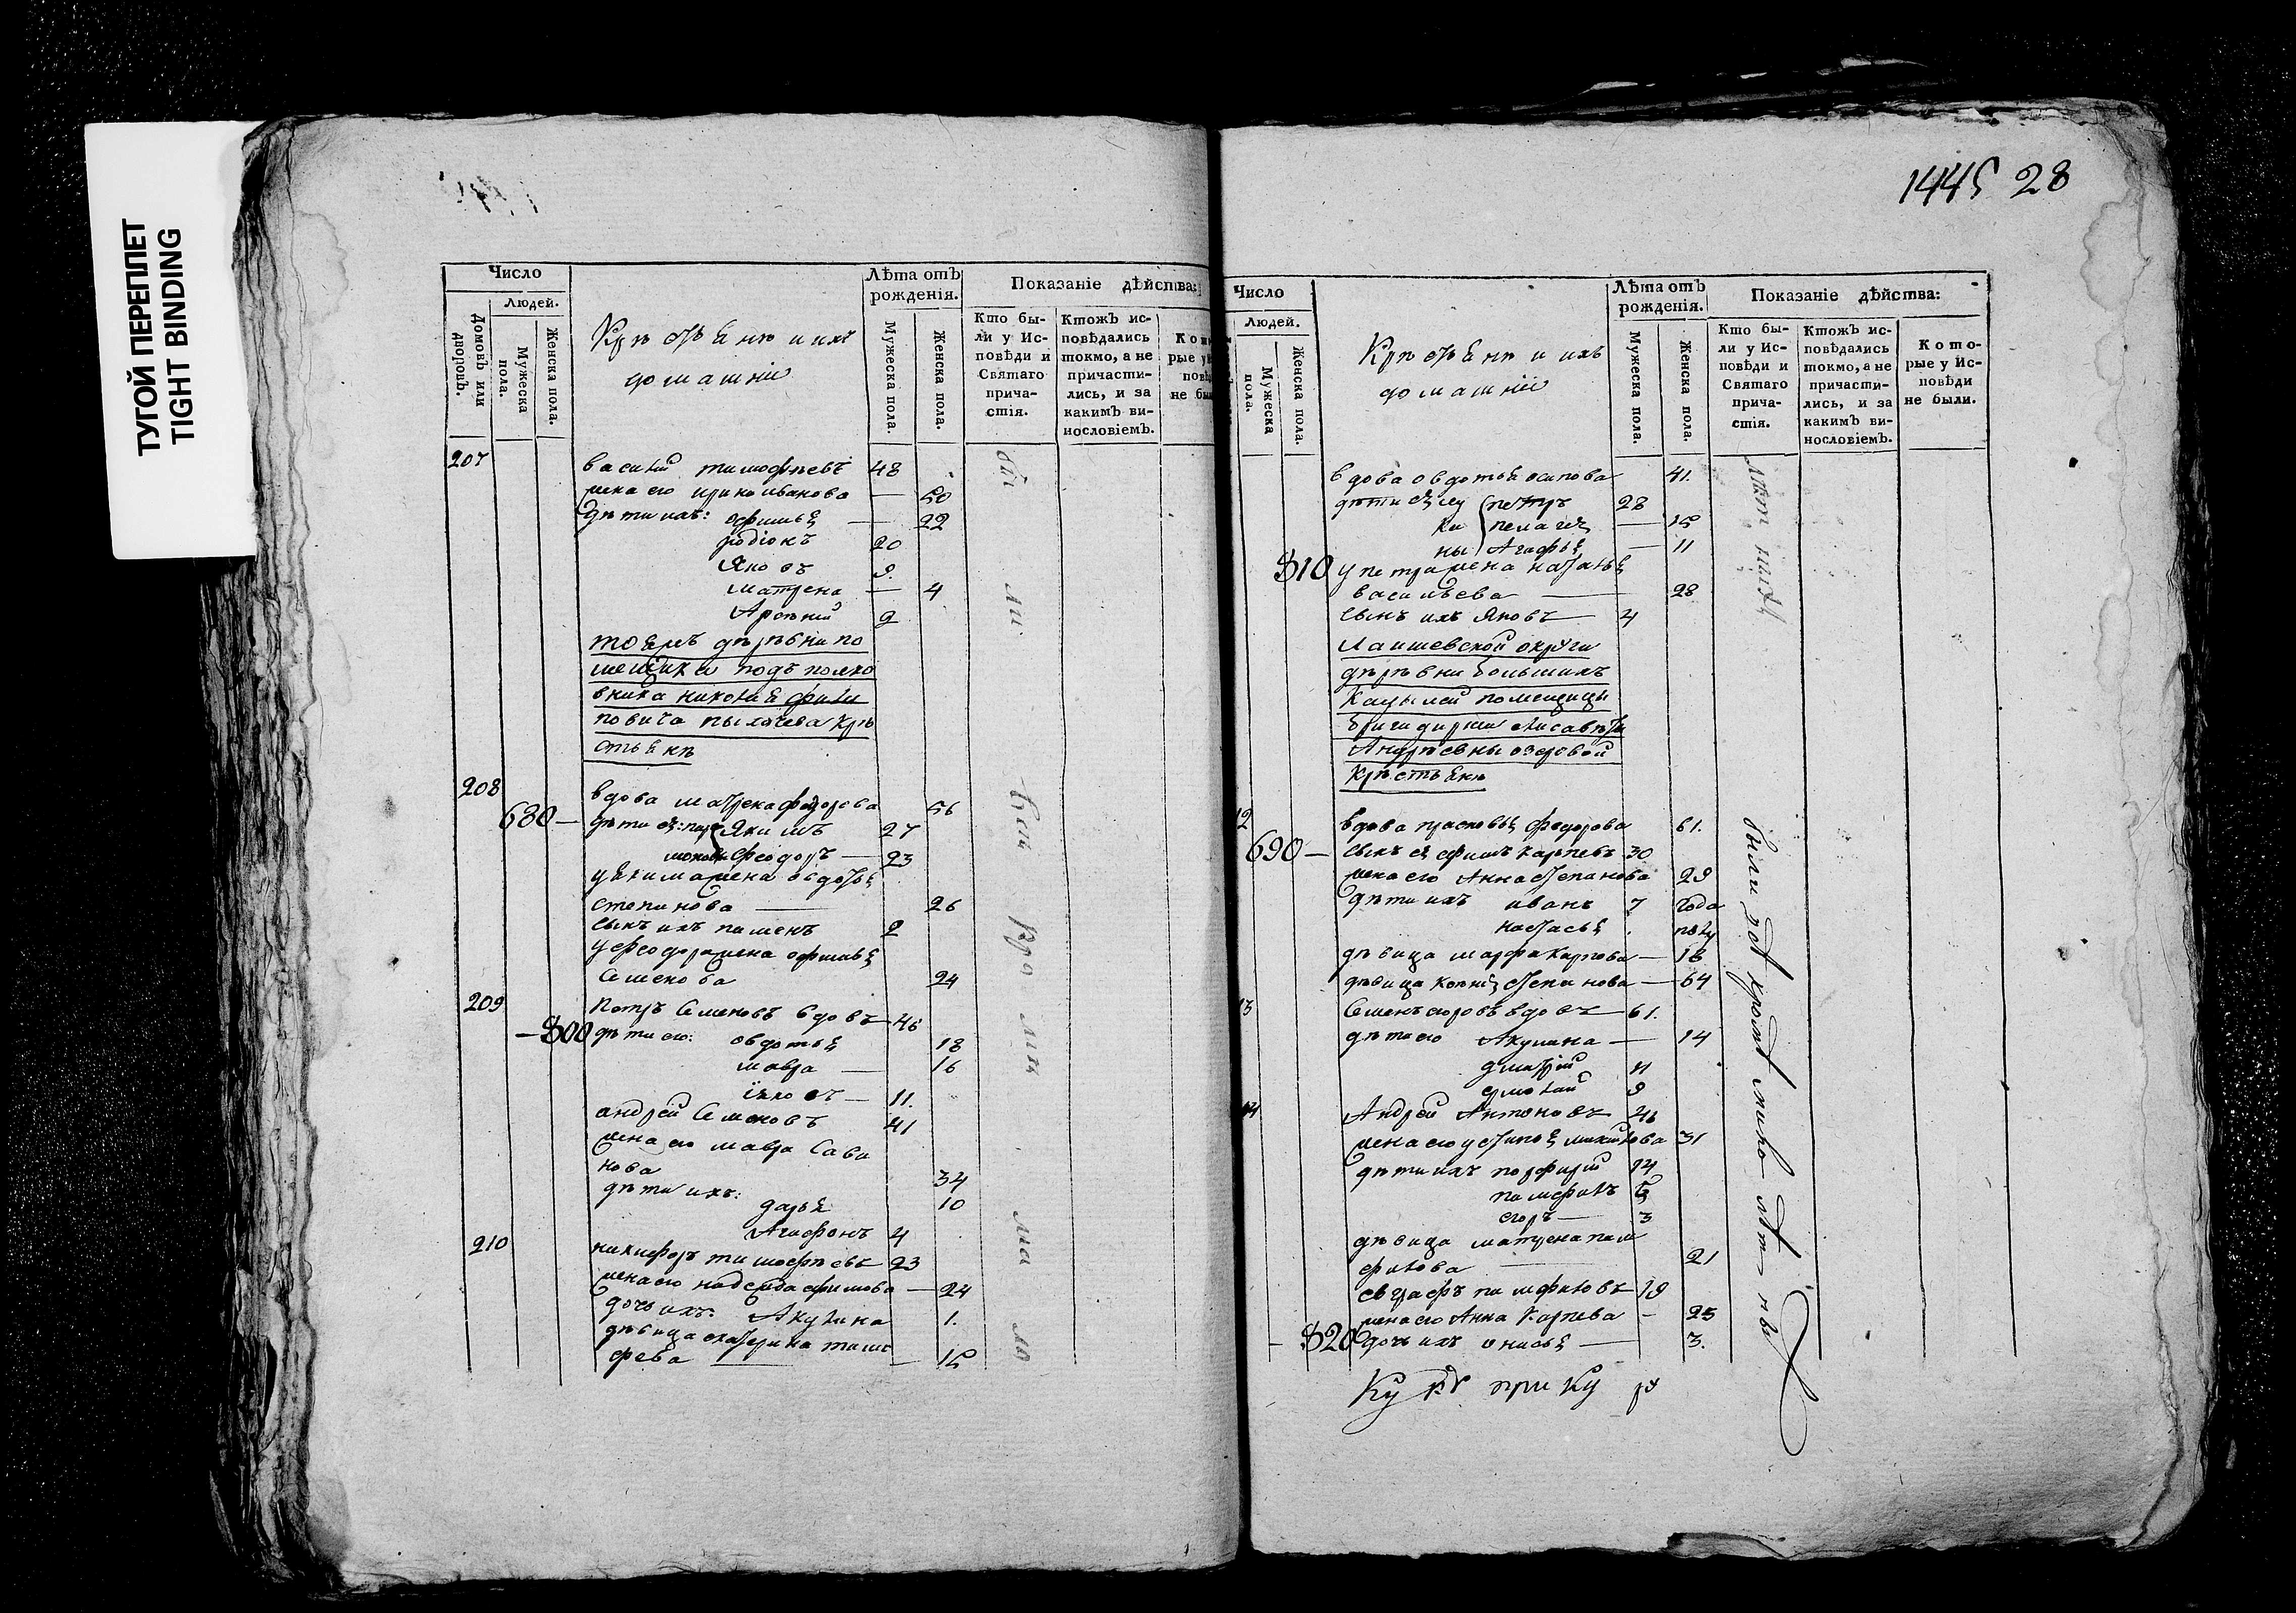 ТУГОЙ ПЕРЕПЛЕТ
TIGHT BINDING
Число
Людей.
Домовъ или дворовъ.
Мужеска пола.
Женска пола.
Крѣстьянѣ и ихъ
домашніи
Лѣта отъ рожденія.
Мужеска пола.
Женска пола.
Показаніе дѣйства:
Кто были у Исповѣди и Святаго причастія.
Ктожъ исповѣдались токмо, а не причастились, и за какимъ винословіемъ.
207 василий тимофѣевъ 48
жена его ирина иванова — 50
дѣти ихъ: афимья — 22
родіонъ 20
Яковъ 9.
матрена — 4
Арсѣний 2
тоямъ дѣрѣвни по
мещика подъ полко
вника николая фили
повича пылаева крѣ
стьянѣ
208 вдова матрена федорова 56
680 — дѣти ея: Якимъ 27
феодоръ — 23
у якима жена овдотья
степанова — 26
сынъ ихъ пименъ 2
у феодора жена афимья
Семенова 24
209 Петръ Семеновъ вдовъ 46
— 800 дѣти его: овдотья 18
мавра — 16
іяковъ — 11.
андрей Семеновъ 41
жена его мавра Сави
нова 34
дѣти ихъ:
дарья 10
Агафонъ 4
210 никифоръ тимофѣевъ 23
жена его надежда ефимова — 24
дочь ихъ: Акулина 1.
дѣвица екатерина тимо
фева — 15
1445 28
Число
Людей.
Мужеска пола.
Женска пола.
Крѣстьянѣ и ихъ
домашніи
Лѣта отъ рожденія.
Мужеска пола.
Женска пола.
Показаніе дѣйства:
Кто были у Исповѣди и Святаго причастія.
Ктожъ исповѣдались токмо, а не причастились, и за какимъ винословіемъ.
Которые у Исповѣди не были.
вдова овдотья осипова 41.
дѣти ея петръ 28
пелагея — 15
Агафья — 11
810 у петра жена наталья
васильева — 28
сынъ ихъ Яковъ — 4
Лаишевской округи
дѣрѣвни большихъ
Кабылей помещицы
бригадирши Лисаветы
Андрѣевны озеровой
крѣстьянѣ
12 вдова прасковья федорова 61.
690 — сынъ ея ефимъ карпевъ 30
жена его Анна степанова 29
дѣти ихъ иванъ 7 года
настасья полу
дѣвица марфа карпова — 18
дѣвица степанова — 64
13 Семенъ вдовъ — 61.
дѣти его Акулина — 14
дмитрій 11
ермолай 9
14 Андрей Антоновъ
жена его устинья 31
дѣти ихъ порфирій 14
памфилъ
егоръ — 3
дѣвица матрена пам
филова — 21
евграфъ памфиловъ 19
жена его Анна Карпева — 25
— 820 дочь ихъ онисья — 3.